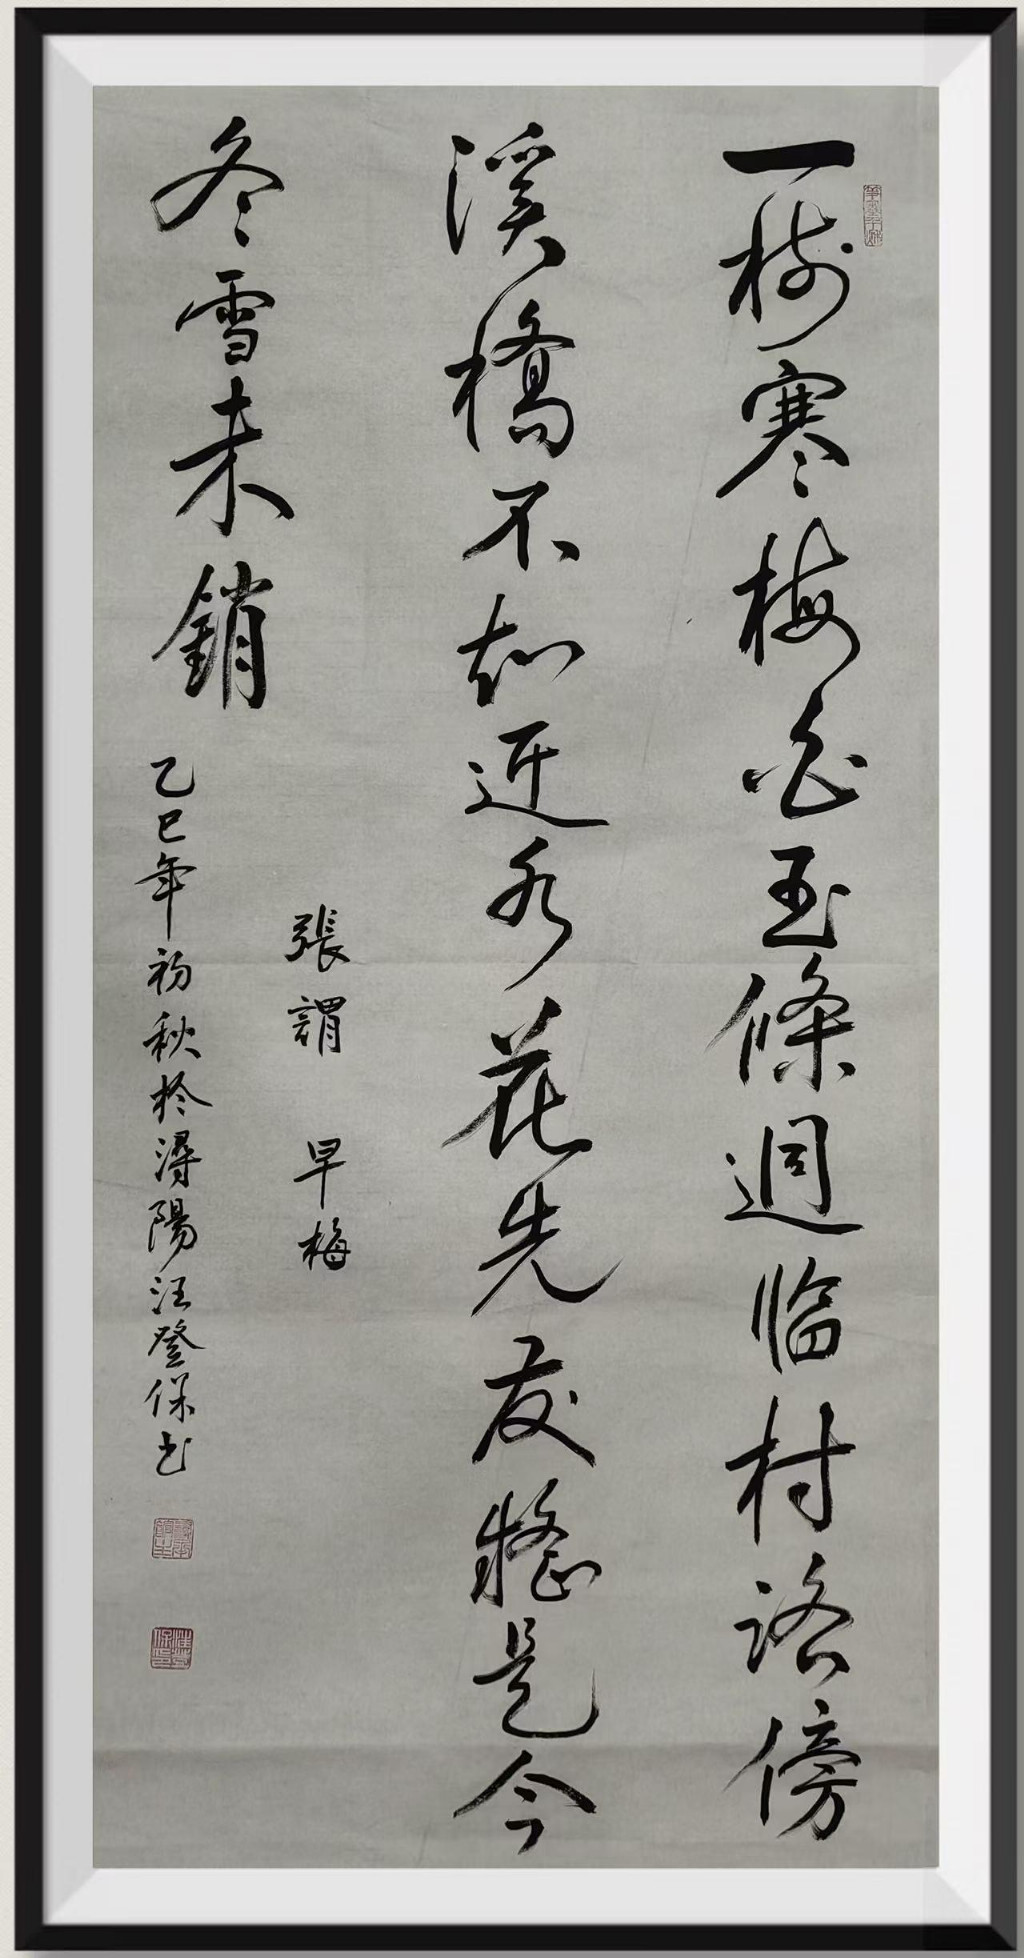 一樹寒梅白玉條迥临村路傍
溪橋不知近水花先發疑是今
冬雪未銷
張謂 早梅
乙巳年初秋於潯陽汪登保书